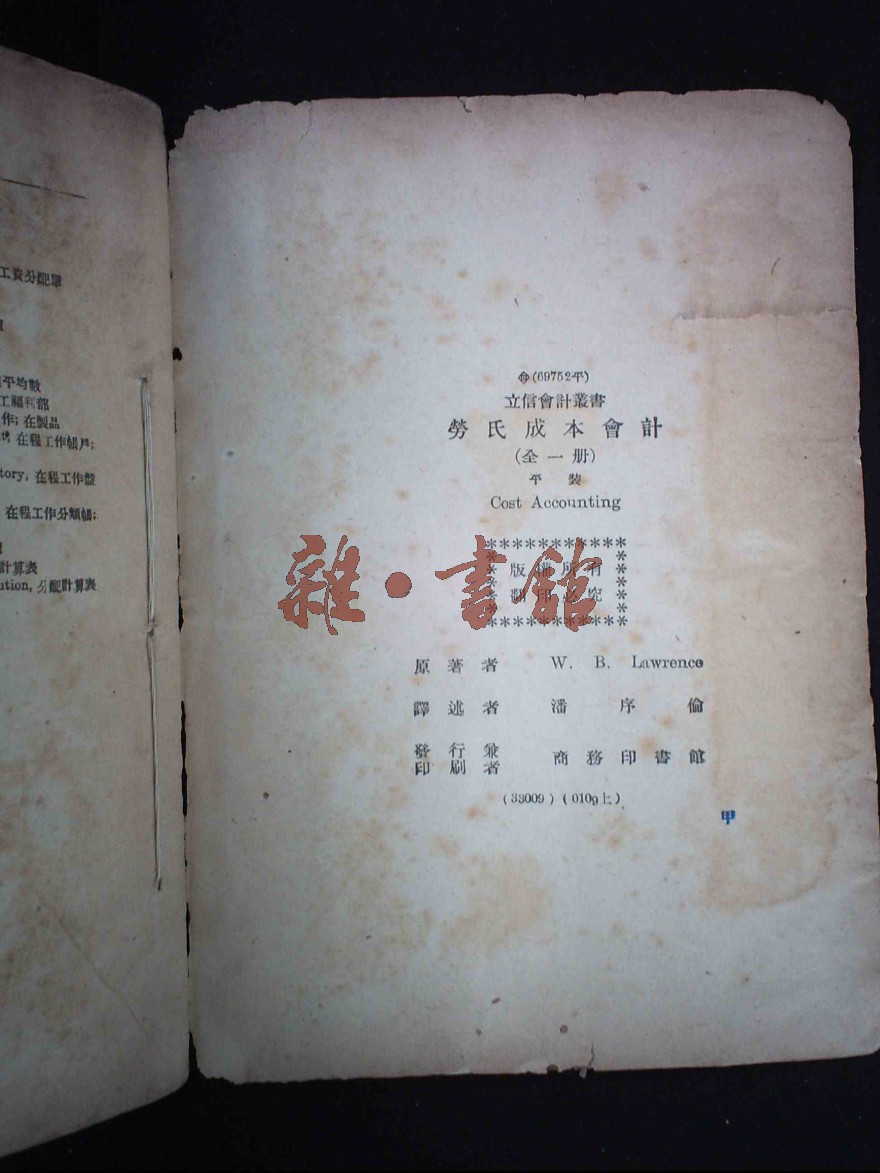 工資分配單
平均數
工福利部
作; 在製品
在程工作帳戶;
tory, 在程工作盤
在程工作分類帳;
計算表
ution, 分配計算表
(69752平)
立信會計叢書
勞氏成本會計
(全一册)
平裝
Cost Accounting
版權所有
翻印必究
雜·書館
原著者 W. B. Lawrence
譯述者 潘序倫
發行兼
印刷者 商務印書館
(33009)(010g上)
甲